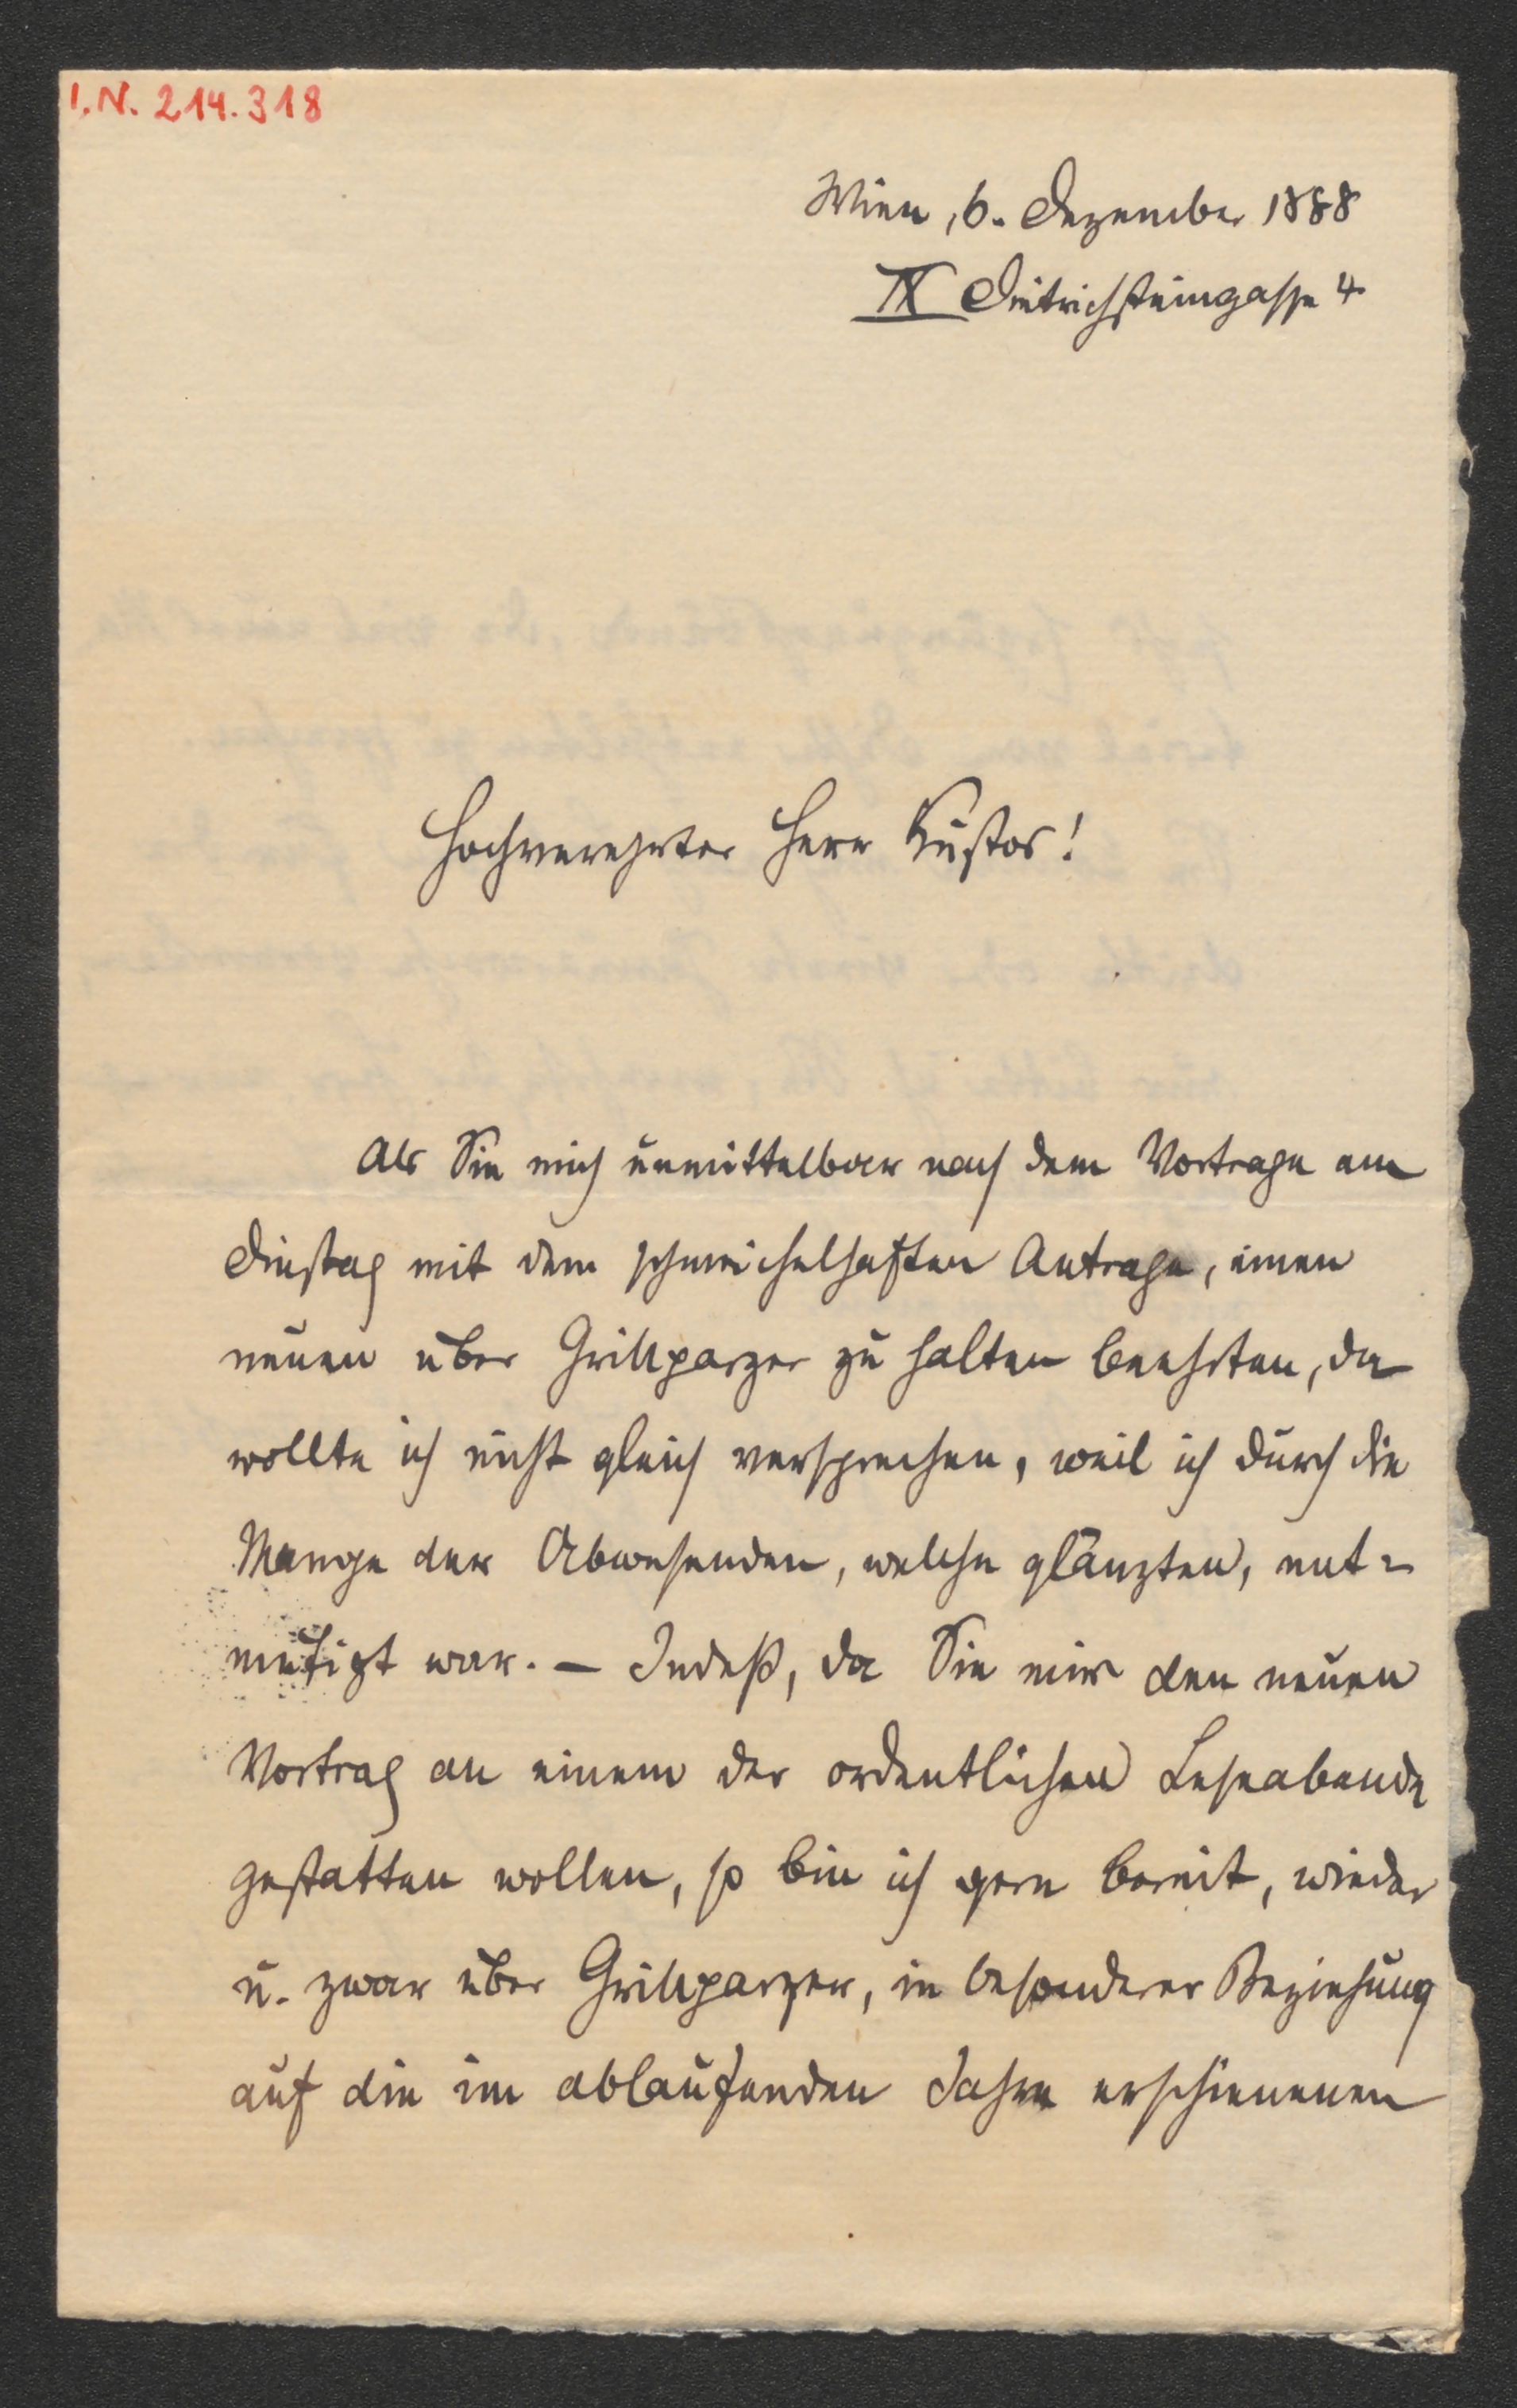 I.N. 214.318
Wien, 6. Dezember 1888
IX Dietrichsteingasse 4
Hochverehrter Herr Kustos!
Als Sie mich unmittelbar nach dem Vortrage am
Dinstag mit dem schmeichelhaften Antrage, einen
neuen über Grillparzer zu halten beehrten, da
wollte ich nicht gleich versprechen, weil ich durch die
Menge der Abwesenden, welche glänzten, ent-
mutigt war. – Indeß, da Sie mir den neuen
Vortrag an einem der ordentlichen Leseabende
gestatten wollen, so bin ich gern bereit, wieder
u. zwar über Grillparzer, in besonderer Beziehung
auf die im ablaufenden Jahre erschienenen